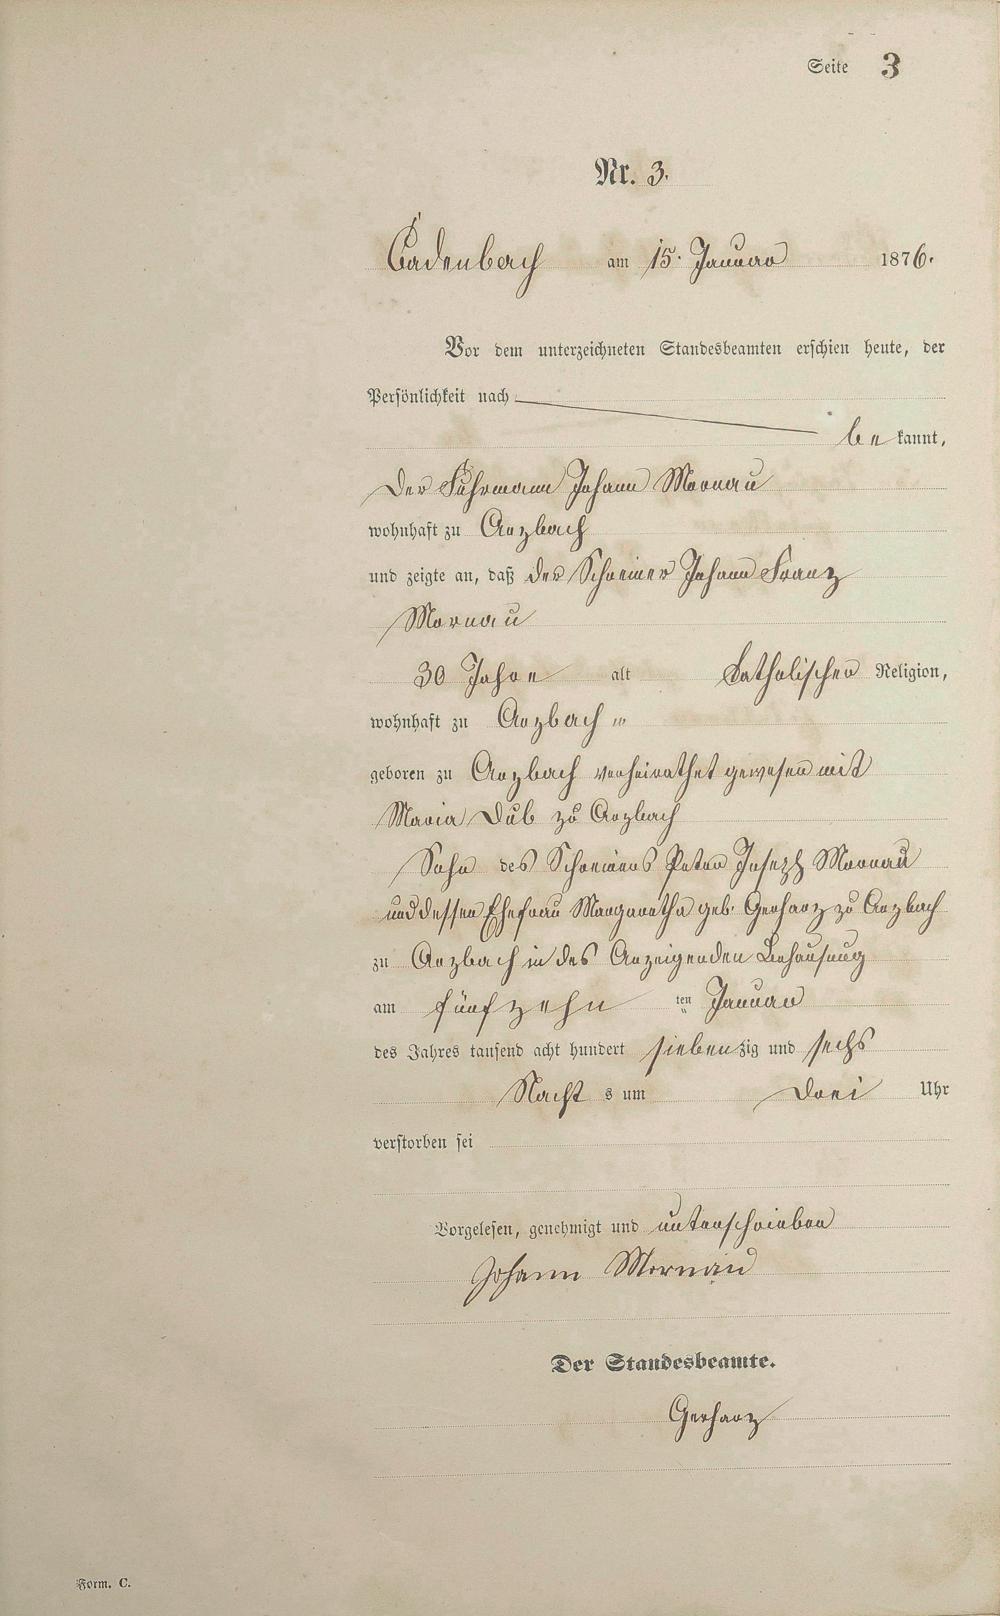 Seite 3
Nr. 3.
Cadenbach am 15. Januar 1876.
Vor dem unterzeichneten Standesbeamten erschien heute, der
Persönlichkeit nach
be kannt,
Der Fuhrmann Johann Mornau
wohnhaft zu Arzbach
und zeigte an, daß der Schreiner Johann Franz
Mornau
30 Jahre alt katholischer Religion,
wohnhaft zu Arzbach
geboren zu Arzbach verheirathet gewesen mit
Maria Dub zu Arzbach
Sohn des Schreiners Peter Joseph Mornau
und dessen Ehefrau Margaretha geb. Gerharz zu Arzbach
zu Arzbach in des Anzeigenden Behausung
am fünfzehn ten Januar
des Jahres tausend acht hundert siebenzig und sechs
Nacht s um drei Uhr
verstorben sei
Vorgelesen, genehmigt und unterschrieben
Johann Mornau
Der Standesbeamte.
Gerharz
Form. C.